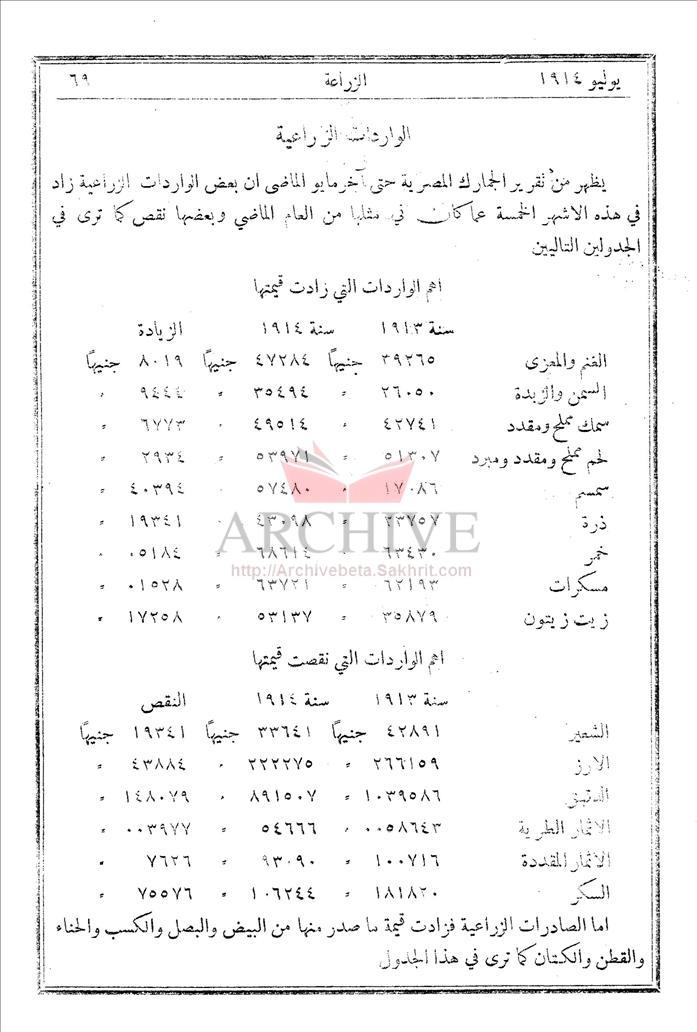 يوليو ١٩١٤ الزراعة ٦٩
الواردات الزراعية
يظهر من تقرير الجمارك المصرية حتى آخر مايو الماضي ان بعض الواردات الزراعية زاد
في هذه الاشهر الخمسة عما كان في مثلها من العام الماضي وبعضها نقص كما ترى في
الجدولين التاليين
اهم الواردات التي زادت قيمتها
سنة ١٩١٣ سنة ١٩١٤ الزيادة
الغنم والمعزى ٣٩٢٦٥ جنيهًا ٤٧٢٨٤ جنيهًا ٨٠١٩ جنيهًا
السمن والزبدة ٢٦٠٥٠ " ٣٥٤٩٤ " ٩٤٤٤ "
سمك مملح ومقدد ٤٢٧٤١ " ٤٩٥١٤ " ٦٧٧٣ "
لحم مملح ومقدد ومبرد ٥١٣٠٧ " ٥٣٩٧١ " ٢٩٣٤ "
سمسم ١٧٠٨٦ " ٥٧٤٨٠ " ٤٠٣٩٤ "
ذرة ٢٣٧٥٧ " ٤٣٠٩٨ " ١٩٣٤١ "
خمر ٦٣٤٣٠ " ٦٨٦١٤ " ٠٥١٨٤ "
مسكرات ٦٢١٩٣ " ٦٣٧٢١ " ٠١٥٢٨ "
زيت زيتون ٣٥٨٧٩ " ٥٣١٣٧ " ١٧٢٥٨ "
اهم الواردات التي نقصت قيمتها
سنة ١٩١٣ سنة ١٩١٤ النقص
الشعير ٤٢٨٩١ جنيهًا ٣٣٦٤١ جنيهًا ١٩٣٤١ جنيهًا
الارز ٢٦٦١٥٩ " ٢٢٢٢٧٥ " ٤٣٨٨٤ "
الدقيق ١٠٣٩٥٨٦ " ٨٩١٥٠٧ " ١٤٨٠٧٩ "
الاثمار الطرية ٠٠٥٨٦٤٣ " ٥٤٦٦٦ " ٠٠٣٩٧٧ "
الاثمار المقددة ١٠٠٧١٦ " ٩٣٠٩٠ " ٧٦٢٦ "
السكر ١٨١٨٢٠ " ١٠٦٢٤٤ " ٧٥٥٧٦ "
اما الصادرات الزراعية فزادت قيمة ما صدر منها من البيض والبصل والكسب والحناء
والقطن والكتان كما ترى في هذا الجدول
ARCHIVE
http://Archivebeta.Sakhrit.com